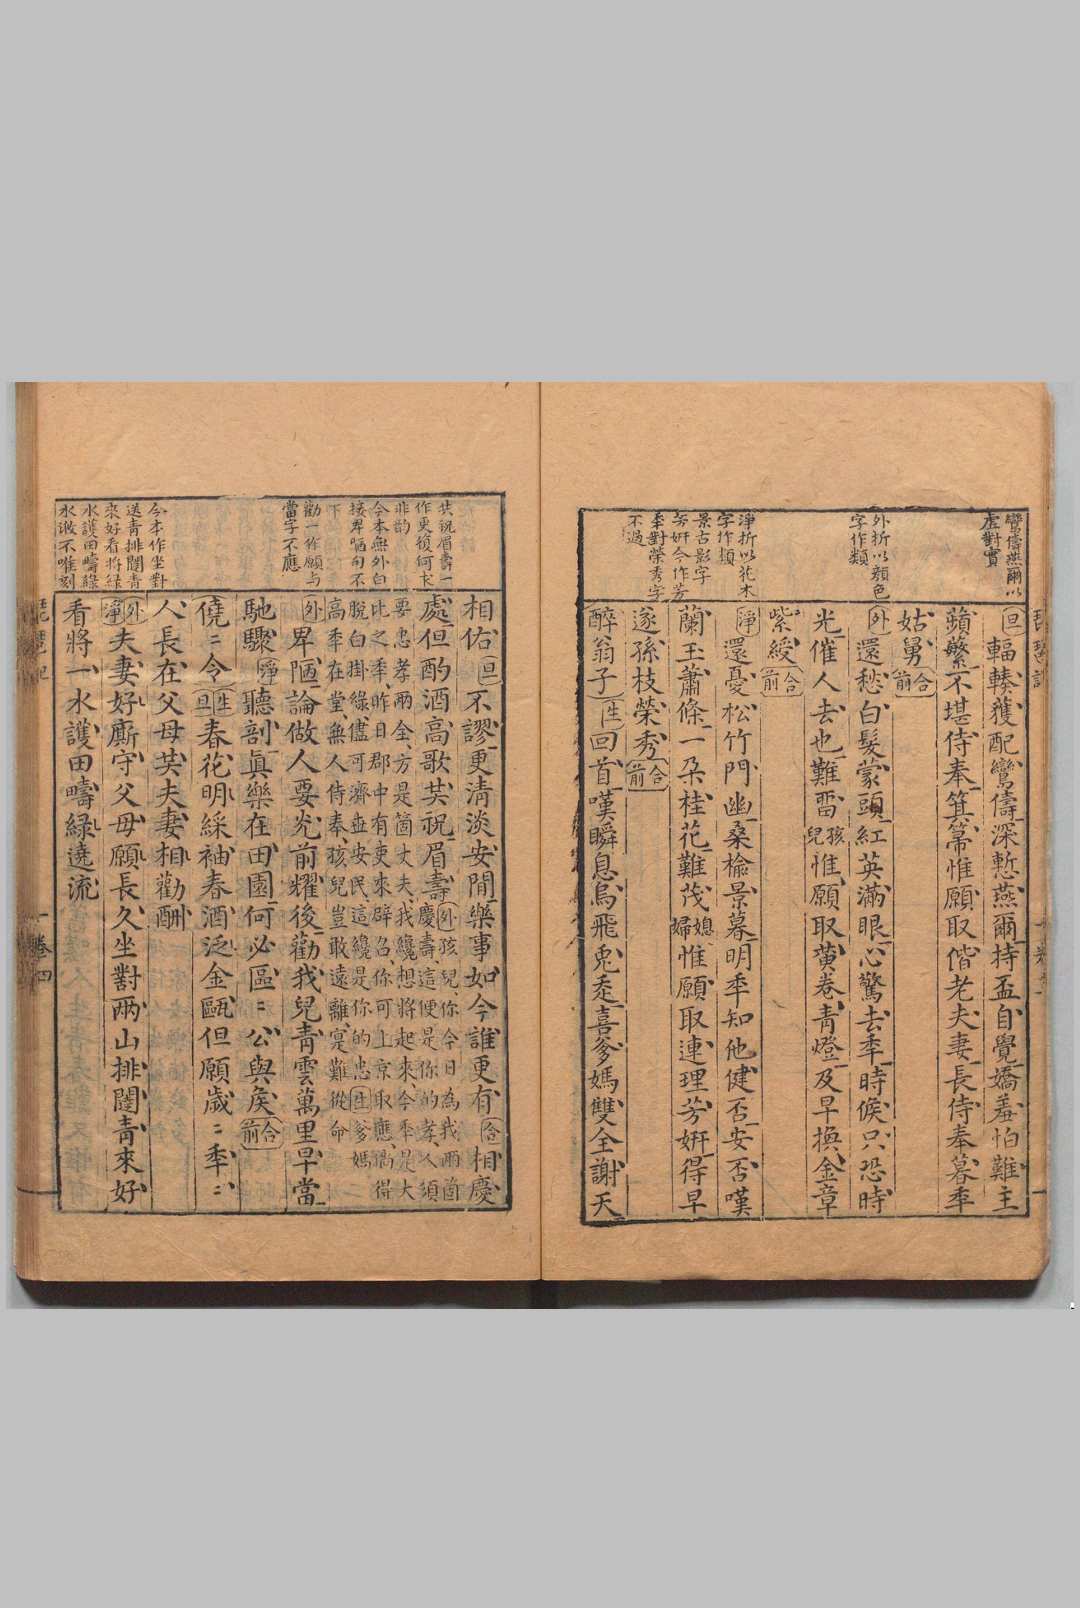 鸞儔燕爾以
虛對實
外折以顏色
字作類
淨折以花木
字作類
景古影字
芳姸今作芳
季對榮秀字
不過
旦 輻輳獲配鸞儔深慙燕爾持盃自覺嬌羞怕難主
蘋蘩不堪侍奉箕箒惟願取偕老夫妻長侍奉暮季
姑舅 合前
外 還愁白髮蒙頭紅英滿眼心驚去季時候只恐時
光催人去也難畱孩兒惟願取黃卷青燈及早換金章
紫綬 合前
淨 還憂松竹門幽桑榆景暮明季知他健否安否嘆
蘭玉蕭條一朶桂花難茂媳婦惟願取連理芳姸得早
遂孫枝榮秀 合前
醉翁子 生 回首嘆瞬息烏飛兎走喜爹媽雙全謝天
共祝眉壽一
作更復何求
非韵
今本無外白
接卑陋句不
下
勸一作願与
當字不應
今本作坐對
送青排闥青
來好看將綠
水護田疇綠
水遶不唯刻
相佑 旦 不謬更清淡安閒樂事如今誰更有 合 相慶
處但酌酒高歌共祝眉壽 外 孩兒你今日為我兩箇
慶壽這便是你的孝人須
要忠孝兩全方是箇丈夫我纔想將起來今季是大
比之季昨日郡中有吏來辟召你可上京取應倘得
脫白掛綠儘可濟世安民這纔是你的忠 生 爹媽
高季在堂無人侍奉孩兒豈敢遠離寔難從命
外 卑陋論做人要光前耀後勸我兒青雲萬里早當
馳驟 淨 聽剖眞樂在田園何必區〻公與矦 合前
僥〻令 生旦 春花明綵袖春酒泛金甌但願歲〻季〻
人長在父母共夫妻相勸酬
外淨 夫妻好廝守父母願長久坐對兩山排闥青來好
看將一水護田疇綠遶流
卷四